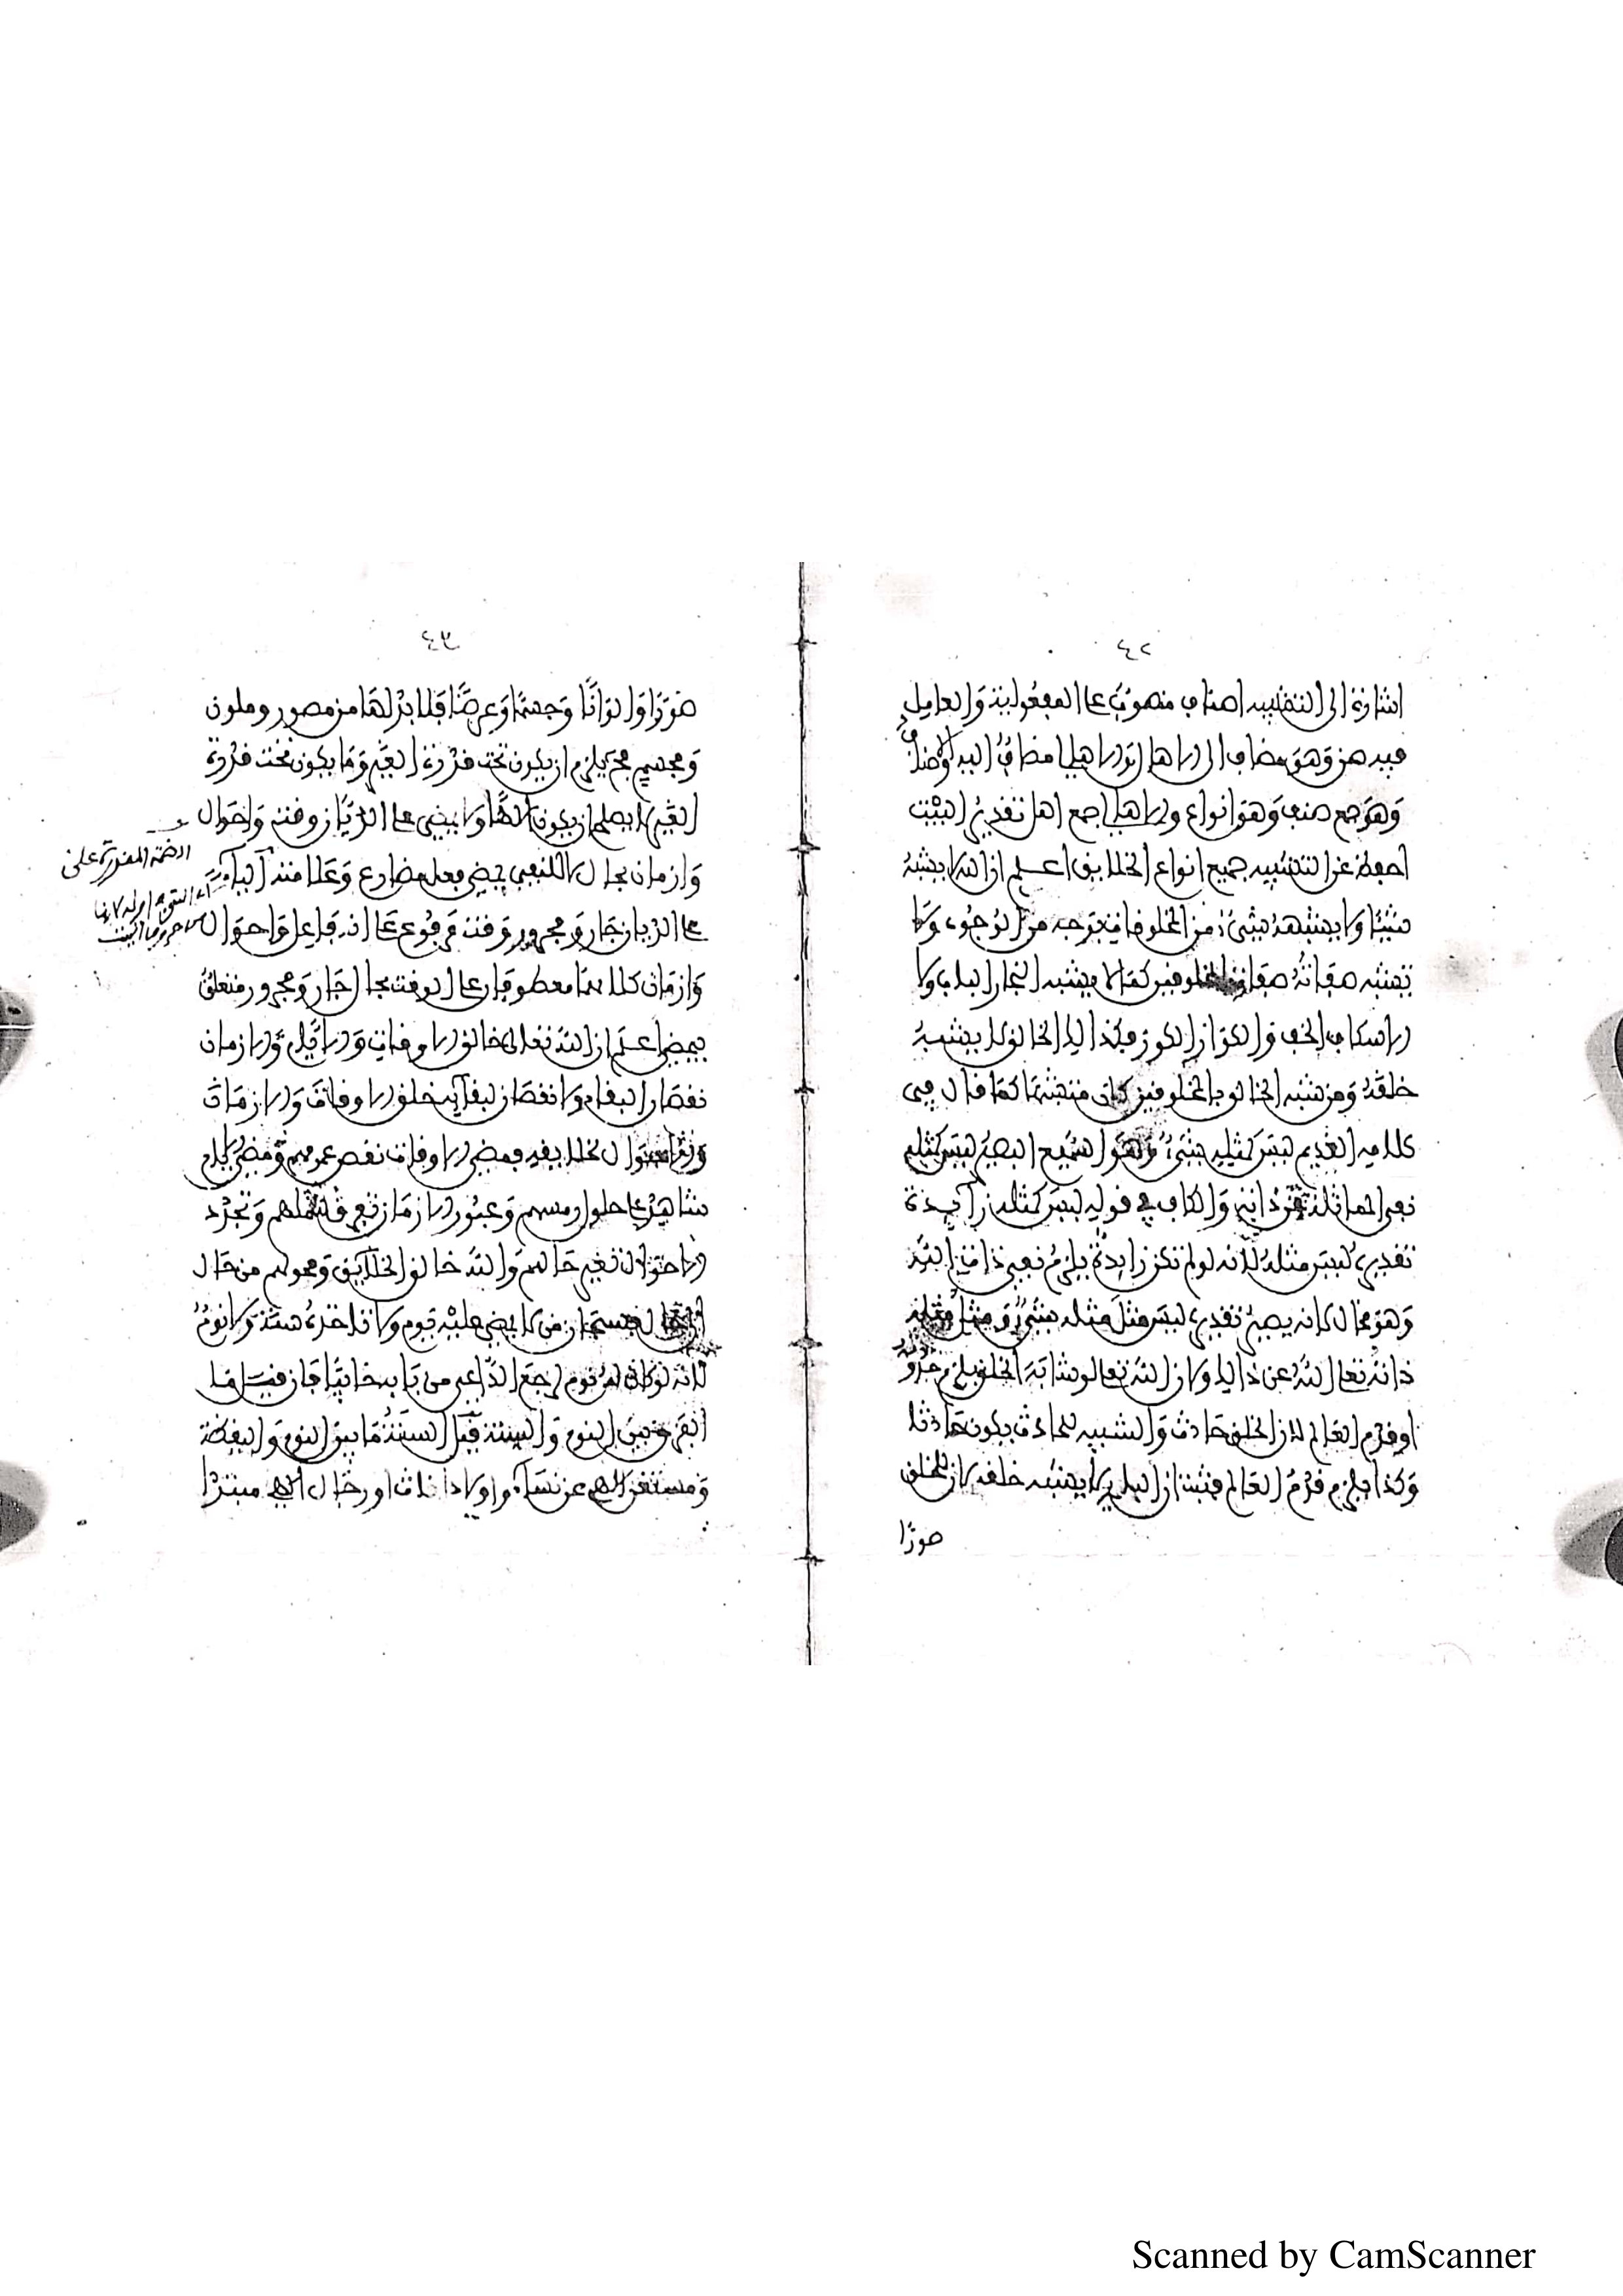 ٤٢
اشارة الى التشبيه اصناف منصوب على المفعولية والعامل
فيه صن وهو مضاف الى الاهال والاهال مضاف اليه والاصناف
وهو جمع صنف وهو انواع والاهالى جمع اهل تقدير البيت
احفظ عن التشبيه جميع انواع الخلايق اعلم ان الله لا يشبه
شيئا ولا يشبهه شيئ من المخلوقات بوجه من الوجوه ولا
تشبه صفاته صفات المخلوقين كما لا يشبه النجار الباب ولا
الاسكاف الخف والكواز الكوز فكذالك الخالق لا يشبه
خلقه ومن شبه الخالق بالمخلوقين كان متشبها كما قال فى
كلامه القديم ليس كمثله شيئ وهو السميع البصير ليس كمثله
نفى المماثلة عن ذاته والكاف في قوله ليس كمثله زايدة
تقديره ليس مثله لانه لو لم تكن زايدة يلزم نفى ذات الله
وهو محال لانه يصير تقديره ليس مثل مثله شيئ ومثل مثله
ذاته تعالى الله عن ذالك ولان الله تعالى لو شابه الخلق يلزم حدوثه
او قدم العالم لان الخلق حادث والشبيه للحادث يكون حادثا
وكذا يلزم قدم العالم فثبت ان البارى لا يشبه خلقه لان للخلق
صورا
٤٣
صورا والوانا وجسما وعرضا فلا بد لها من مصور وملون
ومجسم ثم يلزم ان يكون تحت قدرة الغير وما يكون تحت قدرة
الغير لا يصلح ان يكون الها ولا يمضى على الديان وقت واحوال
وازمان بحال لا للنفى يمضى فعل مضارع وعلامته الياء
الضمة المقدرة على
على الديان جار ومجرور وقت مرفوع على انه فاعل واحوال
وازمان كلاهما معطوفان على الوقت بحال جار ومجرور متعلق
بيمضى اعلم ان الله تعالى خالق الاوقات والايام والازمان
نقصان البقاء ولا نقصان لبقائه خلق الاوقات والازمان
والاحوال لخلايقه فبمضى الاوقات نقص عمرهم ومضى الايام
شاهد على حلول رمسهم وعبور الازمان تفرق شملهم وتجدد
الاحوال تغير حالهم والله خالق الخلايق ومحولهم من حال
الى حال فسبحان من لا يمضى عليه يوم ولا تاخذه سنة ولا نوم
لانه لو كان له نوم لرجع الداعى من بابه خائبا فان قيل ما
الفرق بين النوم والسنة قيل السنة ما بين النوم واليقظة
ومستغن الهى عن نساء واولاد اناث او رجال الهى مبتدا